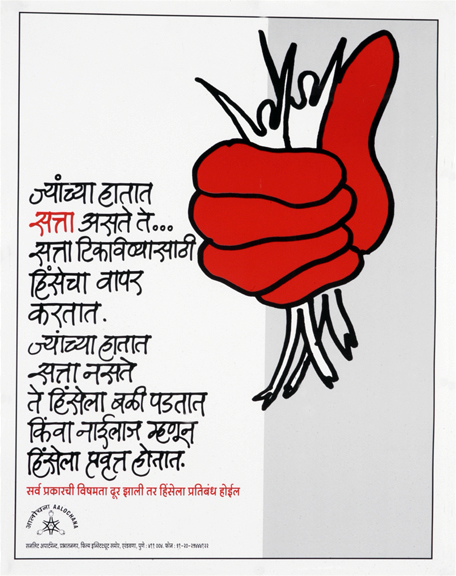 ज्यांच्या हातात
सत्ता असते ते...
सत्ता टिकविण्यासाठी
हिंसेचा वापर
करतात.
ज्यांच्या हातात
सत्ता नसते
ते हिंसेला बळी पडतात
किंवा नाईलाज म्हणून
हिंसेला प्रवृत्त होतात.
सर्व प्रकारची विषमता दूर झाली तर हिंसेला प्रतिबंध होईल
आलोचना AALOCHANA